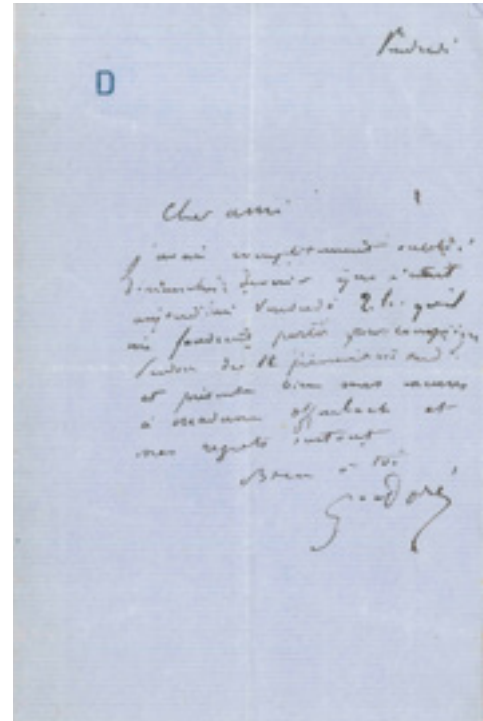 Vendredi
D
Cher ami
j'avais complètement oublié
Dimanche dernier que c'était
aujourd'hui Vendredi qu'il
me faudrait partir pour
de te
et présente bien mes excuses
à madame Offenbach et
mes regrets surtout
Bien à toi
Gve Doré